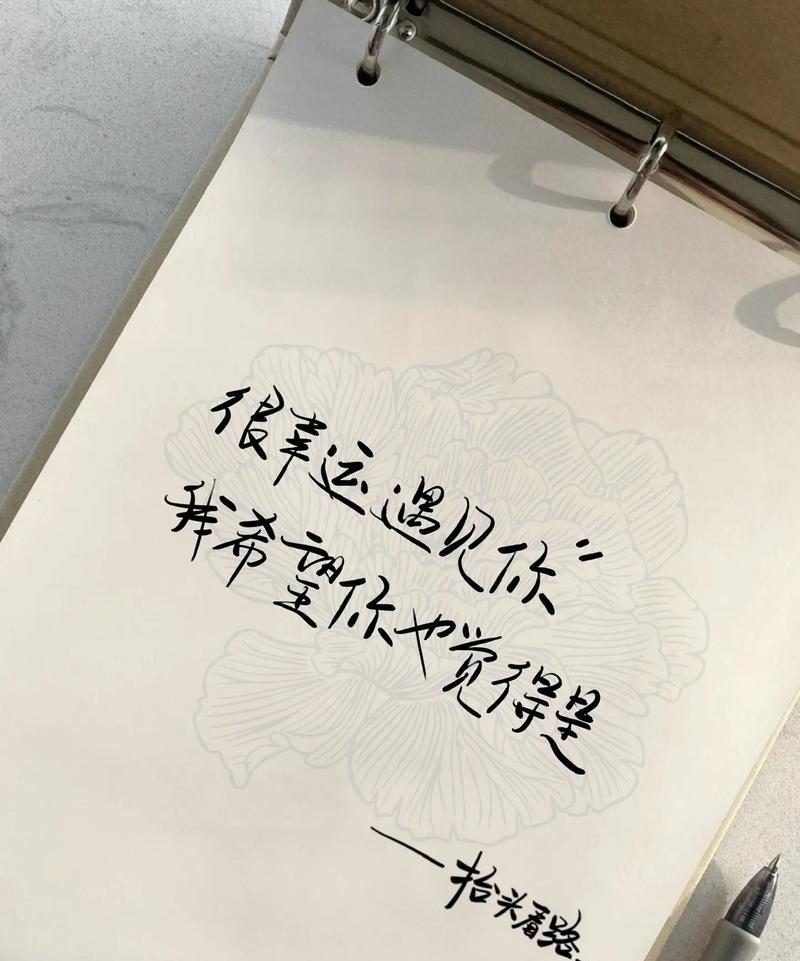 很幸运遇见你"
我希望你也觉得是
—抬头看路.